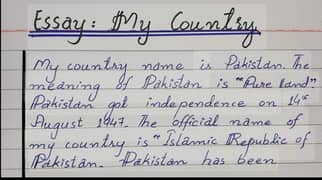 Essay: My Country
My country name is Pakistan. The
meaning of Pakistan is "Pure land".
Pakistan got independence on 14th
August 1947. The official name of
my country is "Islamic Republic of
Pakistan. Pakistan has been